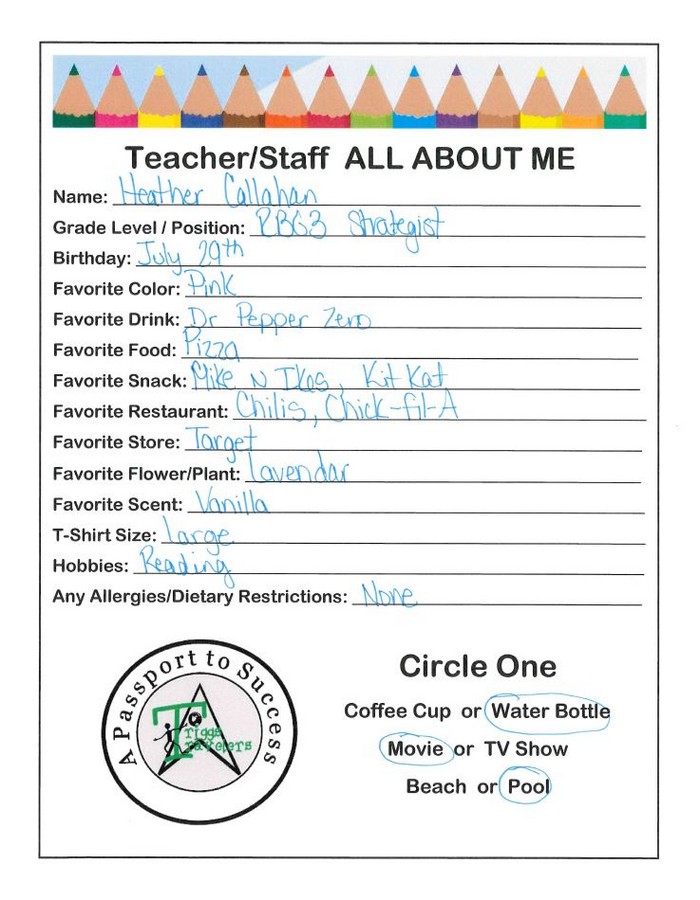 Teacher/Staff ALL ABOUT ME
Name: Heather Callahan
Grade Level / Position: RBG3 Strategist
Birthday: July 29th
Favorite Color: Pink
Favorite Drink: Dr Pepper Zero
Favorite Food: Pizza
Favorite Snack: Mike N Ikes, Kit Kat
Favorite Restaurant: Chilis, Chick-fil-A
Favorite Store: Target
Favorite Flower/Plant: Lavendar
Favorite Scent: Vanilla
T-Shirt Size: Large
Hobbies: Reading
Any Allergies/Dietary Restrictions: None
A Passport to Success
Triggs
Travelers
Circle One
Coffee Cup or Water Bottle
Movie or TV Show
Beach or Pool